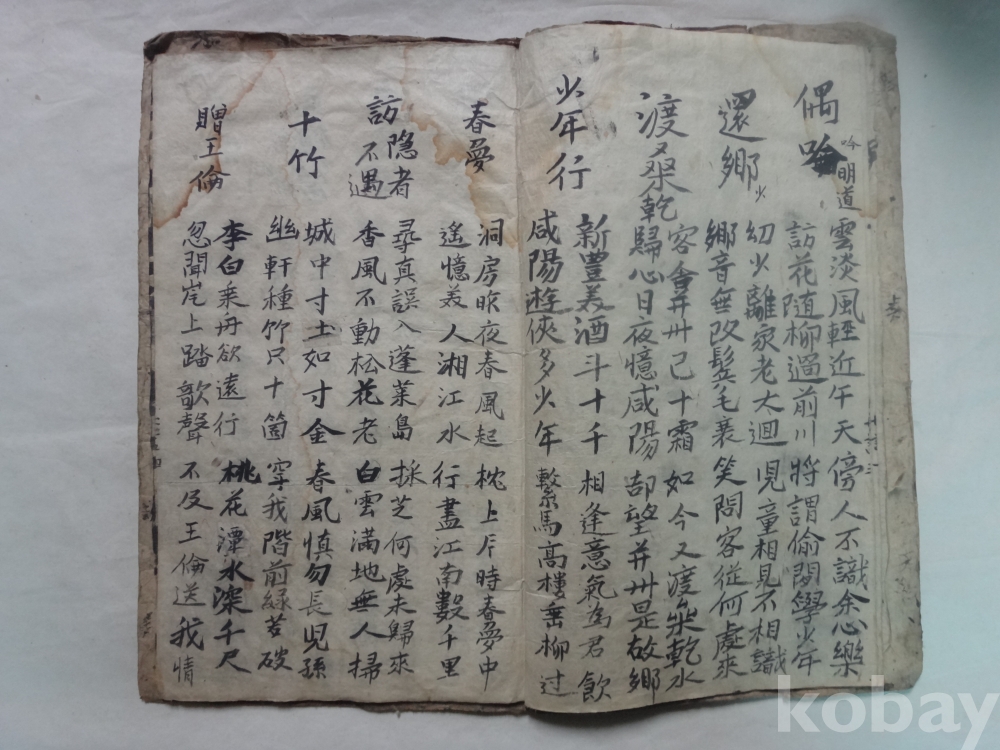 偶吟
吟 明道
雲淡風輕近午天 傍人不識余心樂
訪花随柳過前川 將謂偷閑學少年
還鄉
幼少離家老大迴 児童相見不相識
鄉音無改鬂毛衰 笑問客從何處來
渡桒乾
客舍并州已十霜 如今又渡桒乾水
歸心日夜憶咸陽 却望并州是故鄉
少年行
新豊美酒斗十千 相逢意氣為君飲
咸陽遊俠多少年 繫馬高樓垂柳过
春夢
洞房昨夜春風起 枕上片時春夢中
遙憶美人湘江水 行盡江南數千里
訪隐者
不遇
尋真誤入蓬莱島 採芝何處未歸來
香風不動松花老 白雲满地無人掃
十竹
城中寸土如寸金 春風慎勿長児孫
幽軒種竹只十箇 穿我階前緑苔破
贈王倫
李白乗舟欲遠行 桃花潭水深千尺
忽聞岸上踏歌聲 不及王倫送我情
kobay